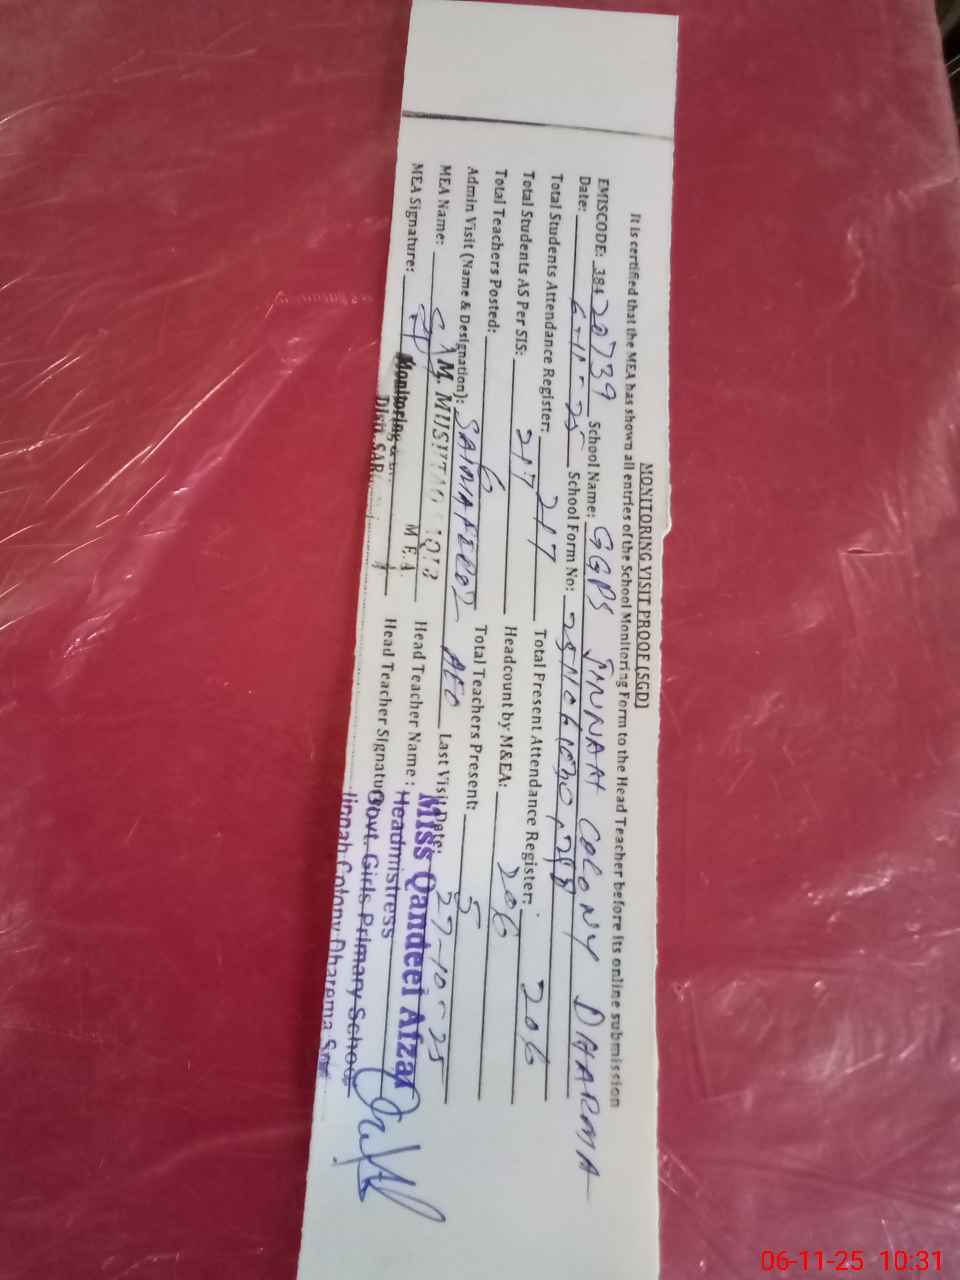 MONITORING VISIT PROOF (SGD)
It is certified that the MEA has shown all entries of the School Monitoring Form to the Head Teacher before its online submission
EMISCODE: 38420739 School Name: GGPS JINNAH COLONY DHARMA
Date: 6-11-25 School Form No:
Total Students Attendance Register: 217 Total Present Attendance Register: 206
Total Students AS Per SIS: 217 Headcount by M&EA: 206
Total Teachers Posted: 6 Total Teachers Present: 5
Admin Visit (Name & Designation): AEO Last Visit Date: 27-10-25
MEA Name: M. MUSHTAQ Head Teacher Name : Miss Qandeel Afzal
M.E.A.
MEA Signature: Head Teacher Signature
Monitoring &
Headmistress
Govt. Girls Primary School
Jinnah Colony Dharema
06-11-25 10:31